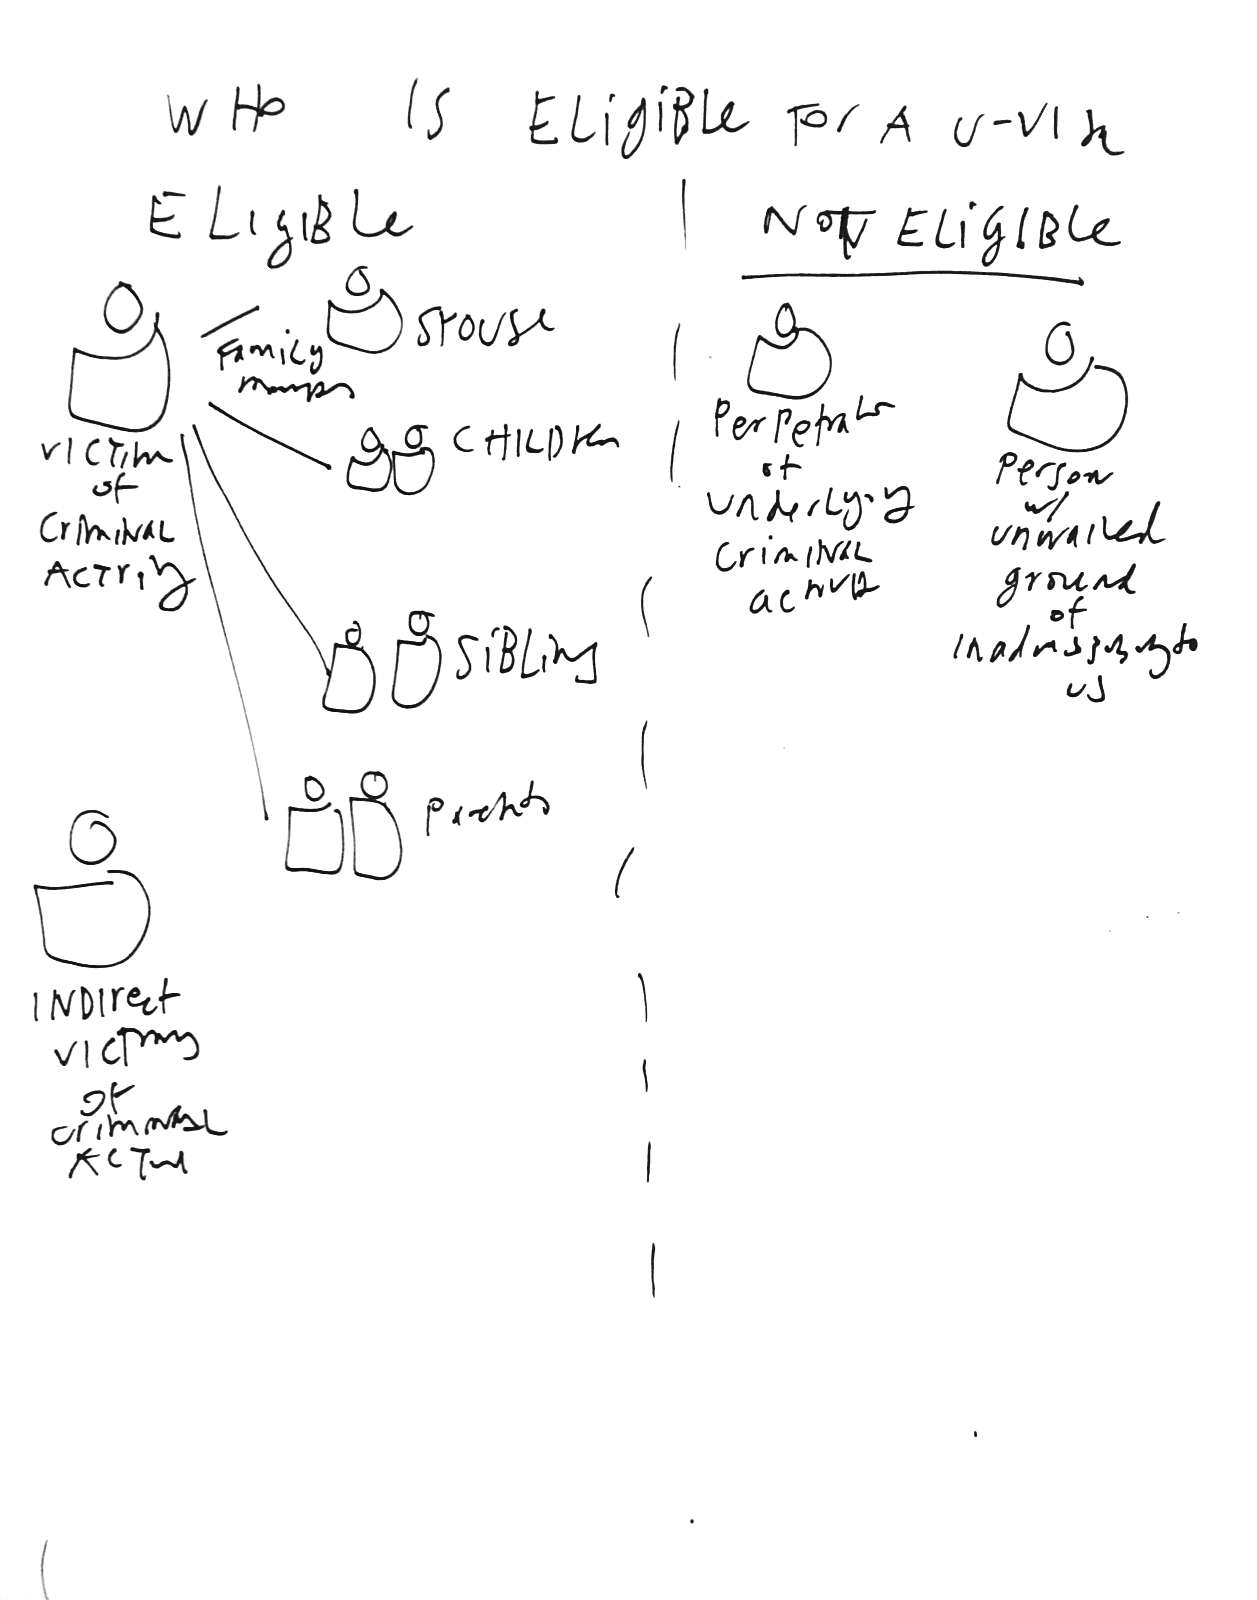 WHO IS ELIGIBLE FOR A U-VISA
ELIGIBLE
NOT ELIGIBLE
SPOUSE
Family
members
CHILDREN
VICTIM
of
CRIMINAL
ACTIVITY
SIBLING
Parents
INDIRECT
VICTIMS
of
CRIMINAL
Perpetrator
of
underlying
CRIMINAL
activity
Person
w/
unwaived
ground
of
inadmissibility to
US